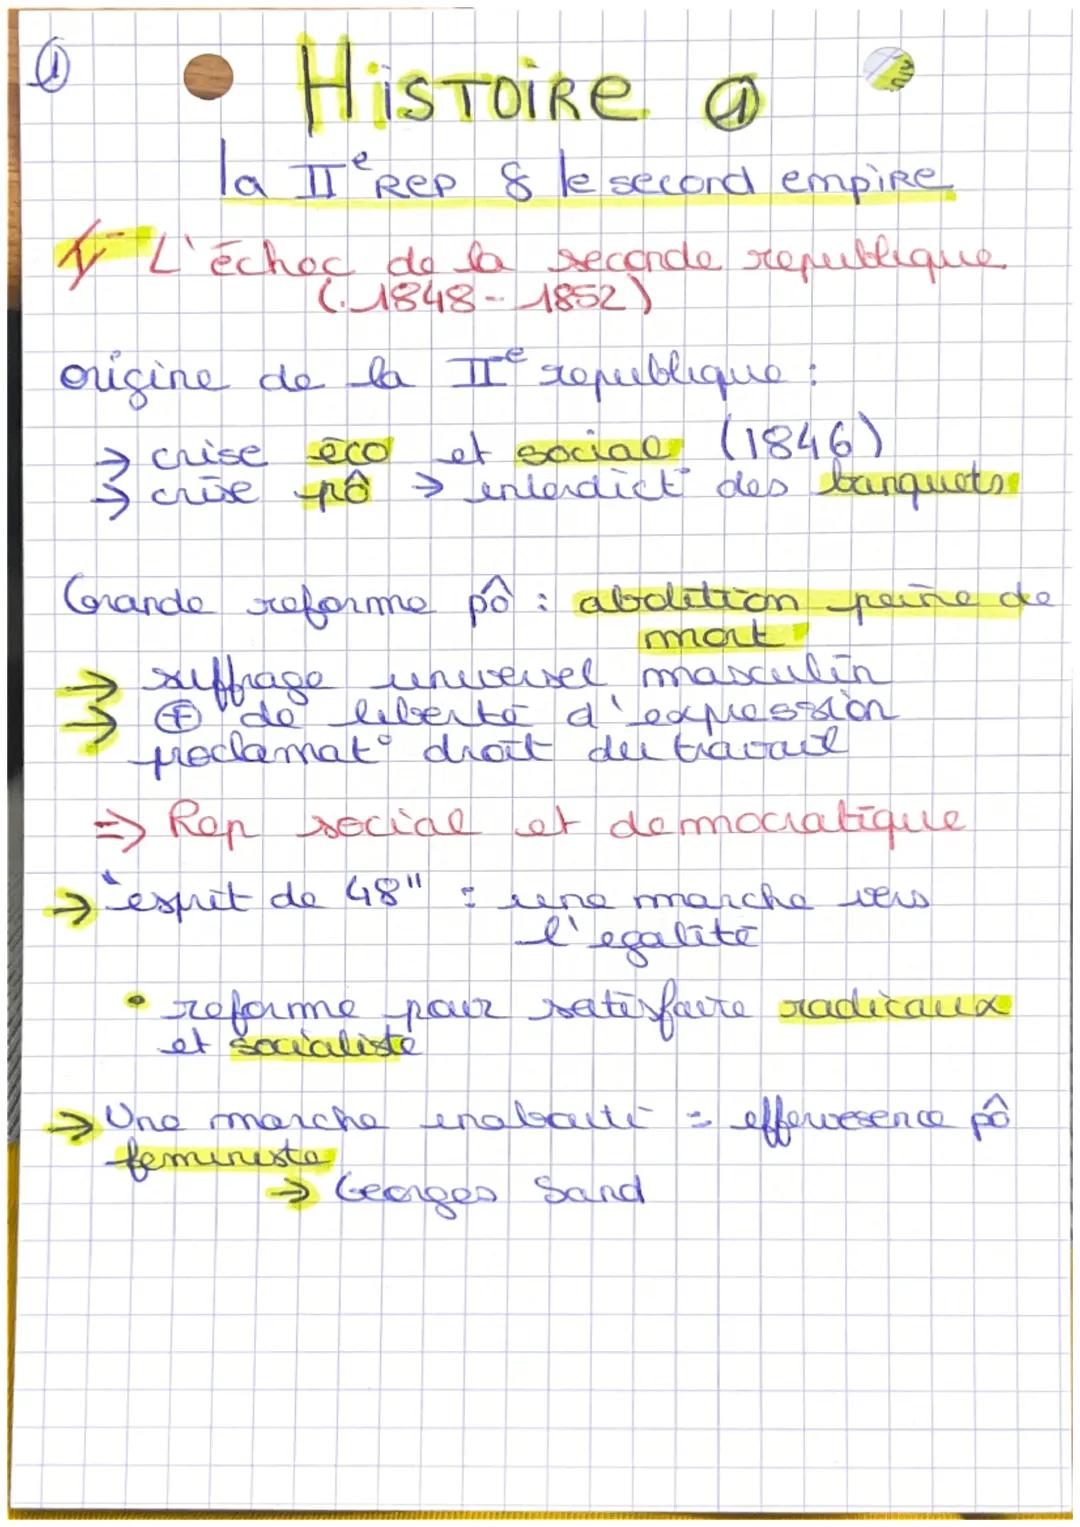 ①
HiSTOiRE ①
la IIe REP & le second empire
1/ L'échec de la seconde republique
(1848-1852)
origine de la IIe republique :
→ crise éco et social (1846)
→ crise pô → interdict° des banquets
Grande reforme pô : abolition peine de
mort
→ suffrage universel masculin
→ ⊕ de liberté d'expression
proclamat° droit du travail
⇒ Rep social et democratique
→ "esprit de 48" : une marche vers
l'egalité
• reforme pour satisfaire radicaux
et socialiste
→ Une marche inabouti = effervesence pô
feministe
→ Georges Sand